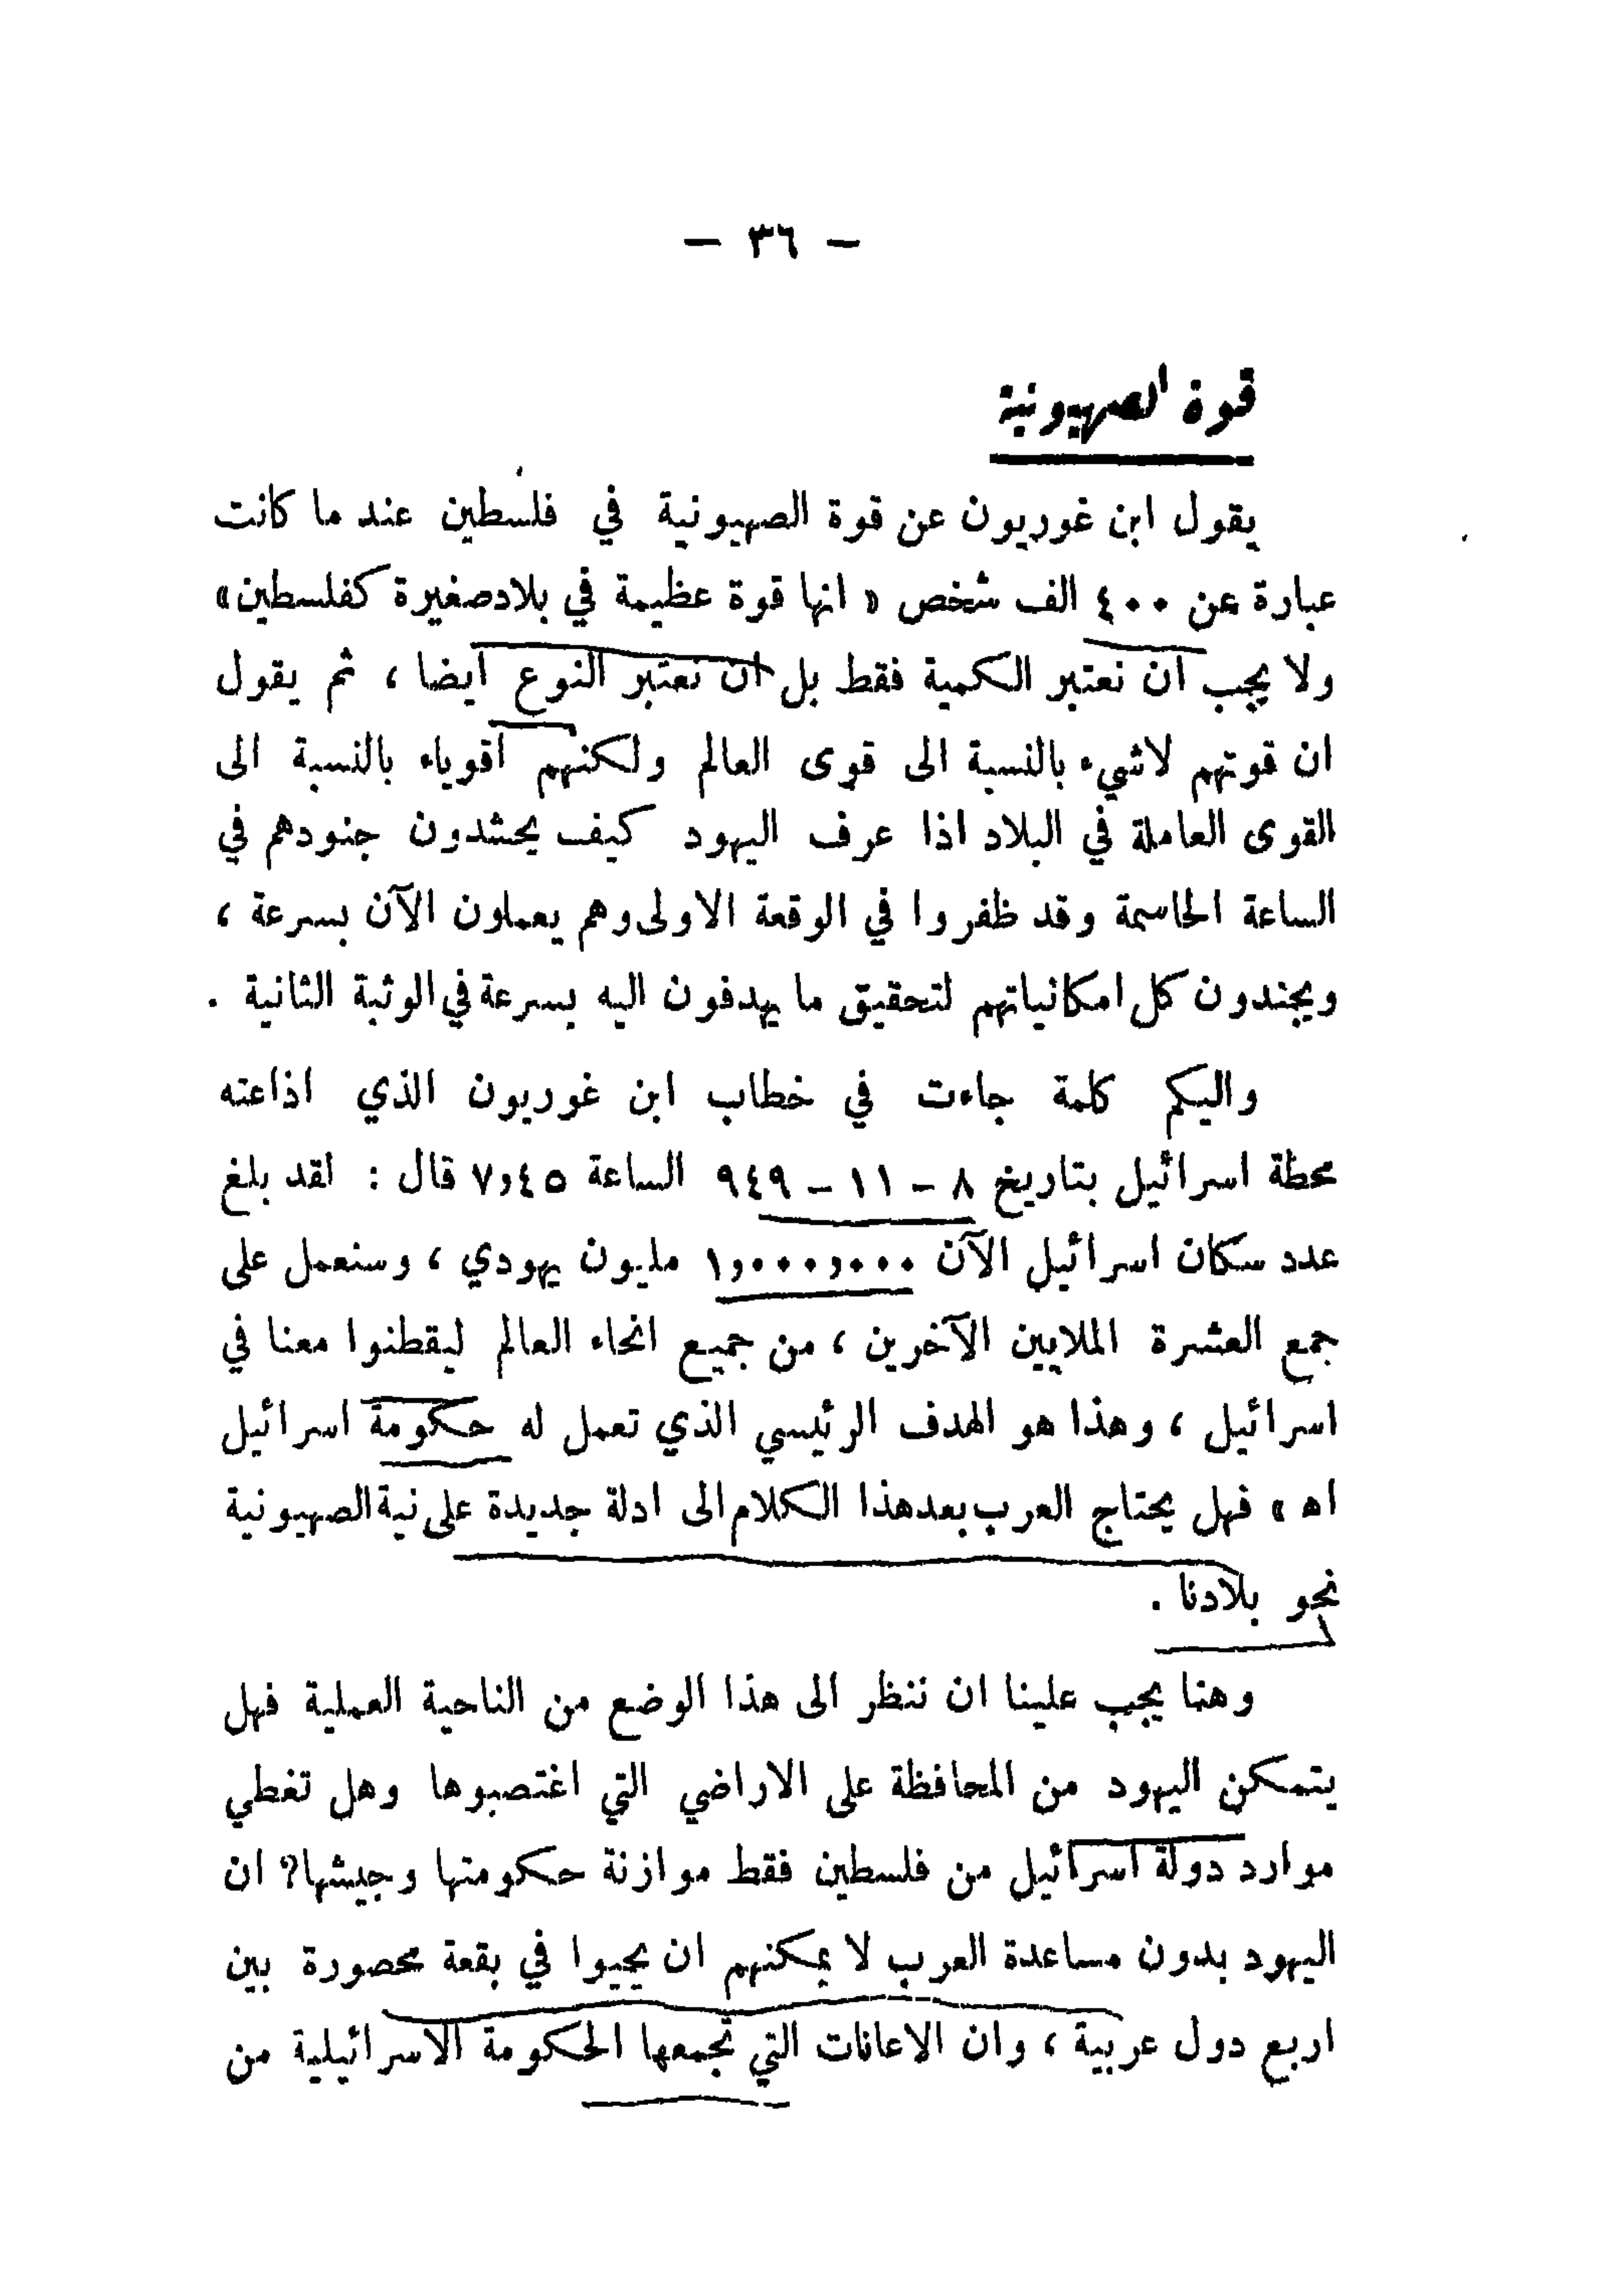 — ٣٦ —
قوة الصهيونية
يقول ابن غوريون عن قوة الصهيونية في فلسطين عند ما كانت
عبارة عن ٤٠٠ الف شخص « انها قوة عظيمة في بلاد صغيرة كفلسطين»
ولا يجب ان نعتبر الكمية فقط بل ان نعتبر النوع ايضا ، ثم يقول
ان قوتهم لاشيء بالنسبة الى قوى العالم ولكنهم اقوياء بالنسبة الى
القوى العاملة في البلاد اذا عرف اليهود كيف يحشدون جنودهم في
الساعة الحاسمة وقد ظفروا في الوقعة الاولى وهم يعملون الآن بسرعة ،
ويجندون كل امكانياتهم لتحقيق ما يهدفون اليه بسرعة في الوثبة الثانية .
واليكم كلمة جاءت في خطاب ابن غوريون الذي اذاعته
محطة اسرائيل بتاريخ ٨ – ١١ – ٩٤٩ الساعة ٧,٤٥ قال : لقد بلغ
عدد سكان اسرائيل الآن ١,٠٠٠,٠٠٠ مليون يهودي ، وسنعمل على
جمع العشرة الملايين الآخرين ، من جميع انحاء العالم ليقطنوا معنا في
اسرائيل ، وهذا هو الهدف الرئيسي الذي تعمل له حكومة اسرائيل
اه » فهل يحتاج العرب بعد هذا الكلام الى ادلة جديدة على نية الصهيونية
نحو بلادنا .
وهنا يجب علينا ان ننظر الى هذا الوضع من الناحية العملية فهل
يتمكن اليهود من المحافظة على الاراضي التي اغتصبوها وهل تغطي
موارد دولة اسرائيل من فلسطين فقط موازنة حكومتها وجيشها؟ ان
اليهود بدون مساعدة العرب لا يمكنهم ان يحيوا في بقعة محصورة بين
اربع دول عربية ، وان الاعانات التي تجمعها الحكومة الاسرائيلية من